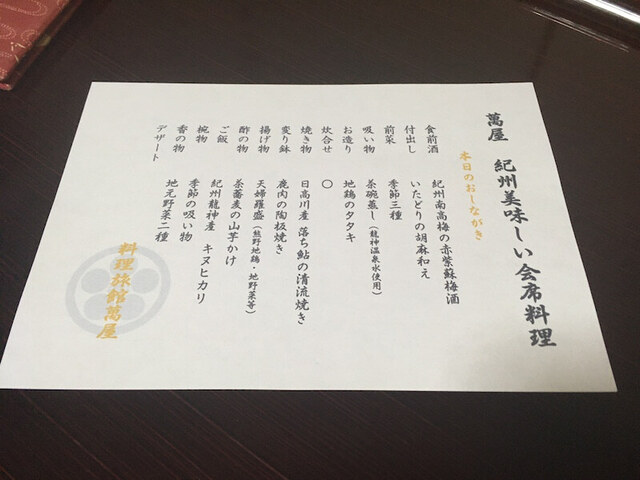 萬屋 紀州美味しい会席料理
本日のおしながき
食前酒 紀州南高梅の赤紫蘇梅酒
付出し いたどりの胡麻和え
前菜 季節三種
吸い物 茶碗蒸し(龍神温泉水使用)
お造り 地鶏のタタキ
炊合せ 〇
焼き物 日高川産 落ち鮎の清流焼き
変り鉢 鹿肉の陶板焼き
揚げ物 天婦羅盛(熊野地鶏・地野菜等)
酢の物 茶蕎麦の山芋かけ
ご飯 紀州龍神産 キヌヒカリ
椀物 季節の吸い物
香の物 地元野菜二種
デザート
料理旅館萬屋